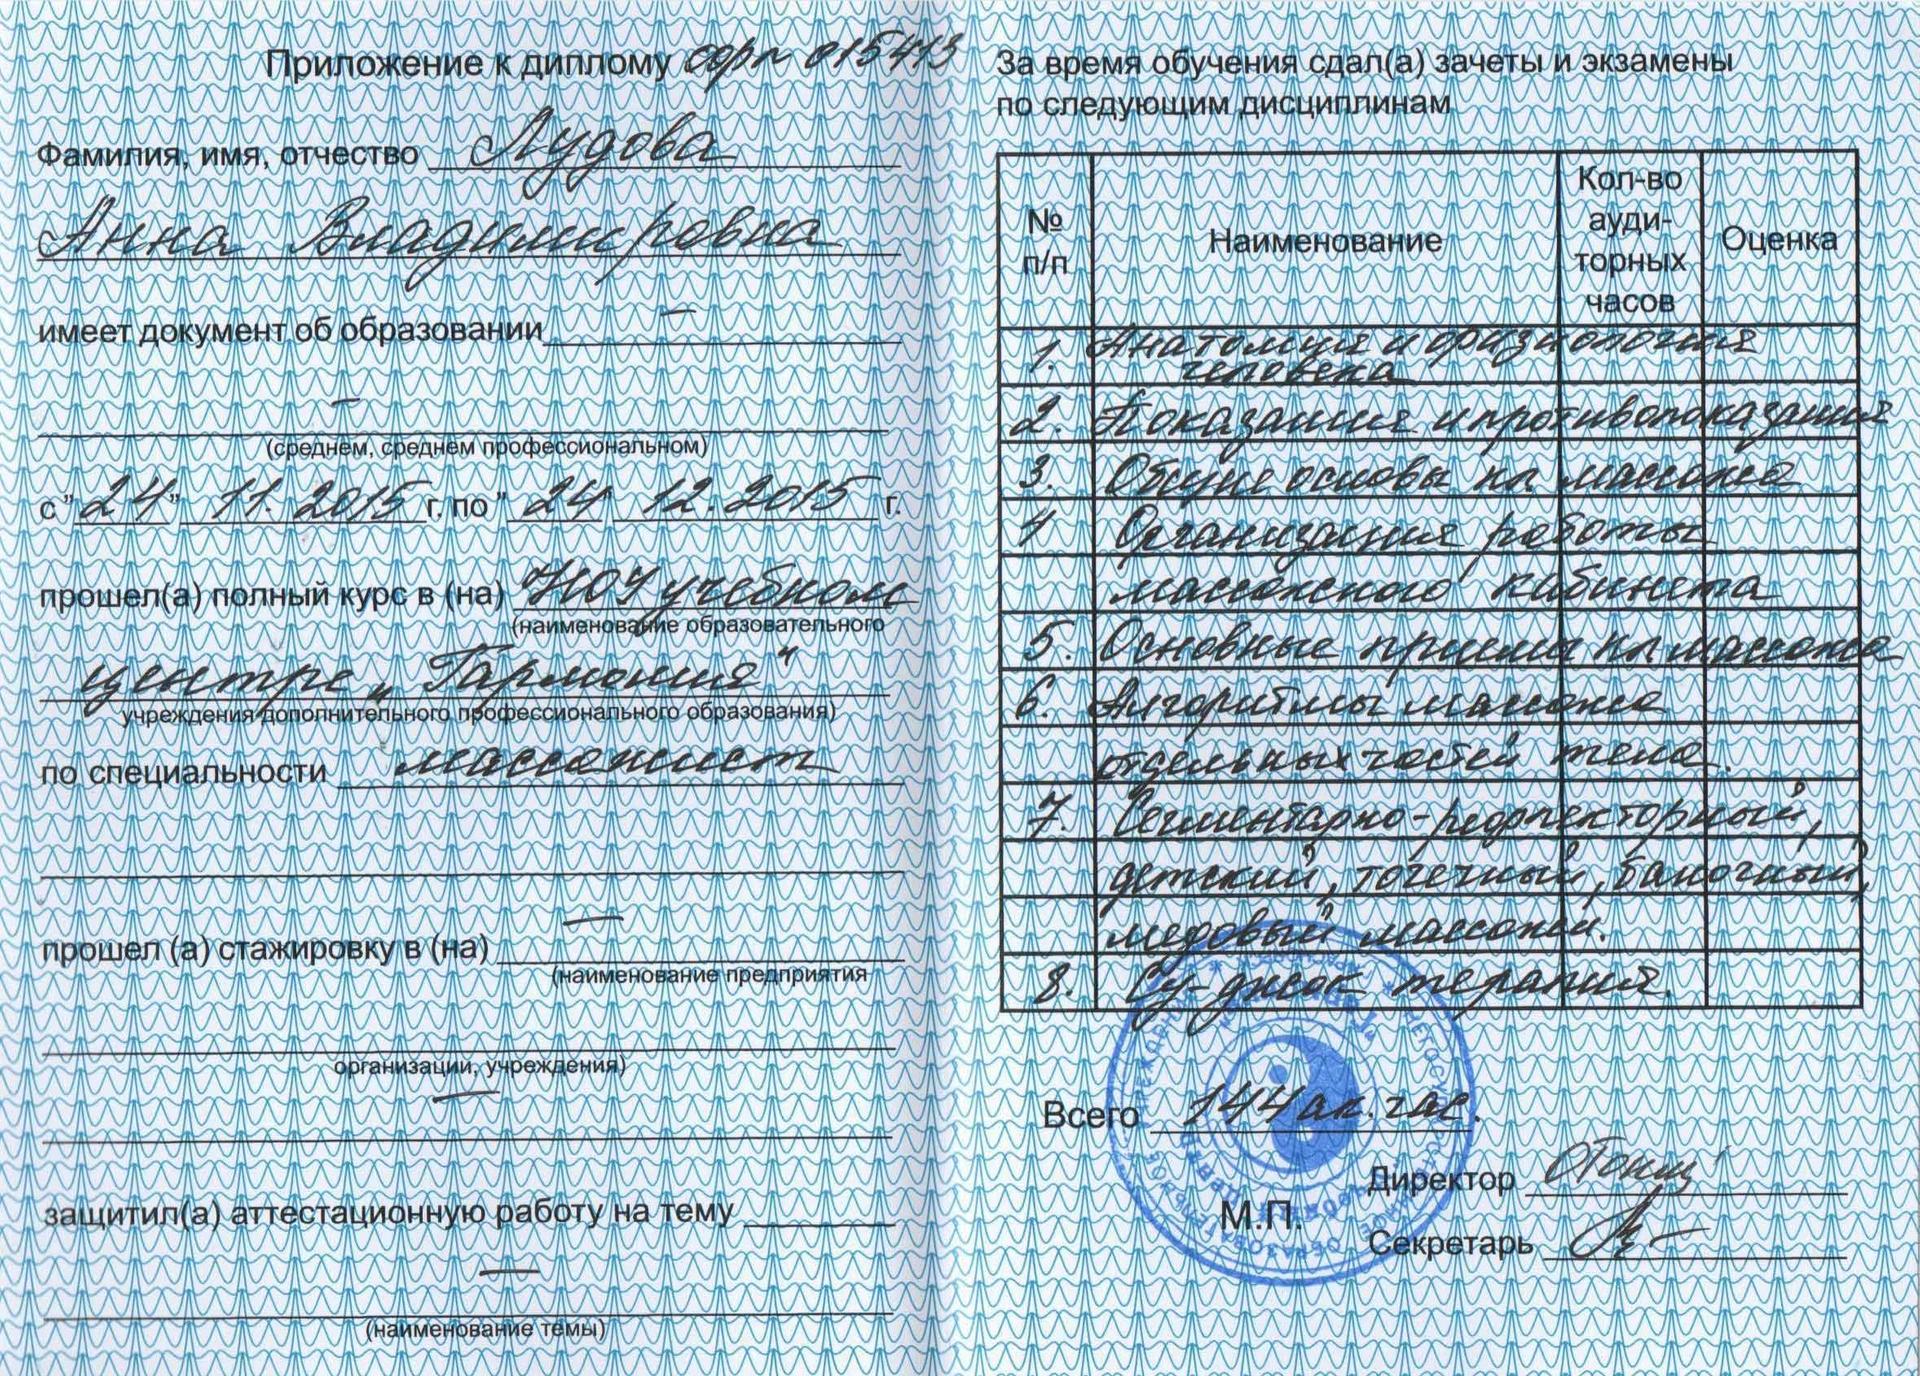 Приложение к диплому 015413
Фамилия, имя, отчество Лудова
Анна Владимировна
имеет документ об образовании –
–
(среднем, среднем профессиональном)
с "24" 11. 2015 г. по "24" 12. 2015 г.
прошел(а) полный курс в (на) НОУ учебном
(наименование образовательного
центре „Гармония"
учреждения дополнительного профессионального образования)
по специальности массажист
прошел (а) стажировку в (на) –
(наименование предприятия
организации, учреждения)
–
защитил(а) аттестационную работу на тему
–
(наименование темы)
За время обучения сдал(а) зачеты и экзамены
по следующим дисциплинам
№ п/п Наименование Кол-во ауди-торных часов Оценка
1. Анатомия и физиология
человека
2. Показания и противопоказания
3. Общие основы кл массажа
4 Организация работы
массажного кабинета
5. Основные приемы кл массажа
6. Алгоритмы массажа
отдельных частей тела.
7. Сегментарно-рефлекторный,
детский, точечный, баночный,
медовый массажи.
8. Су-джок терапия.
Всего 144 ак. час.
Директор
М.П.
Секретарь